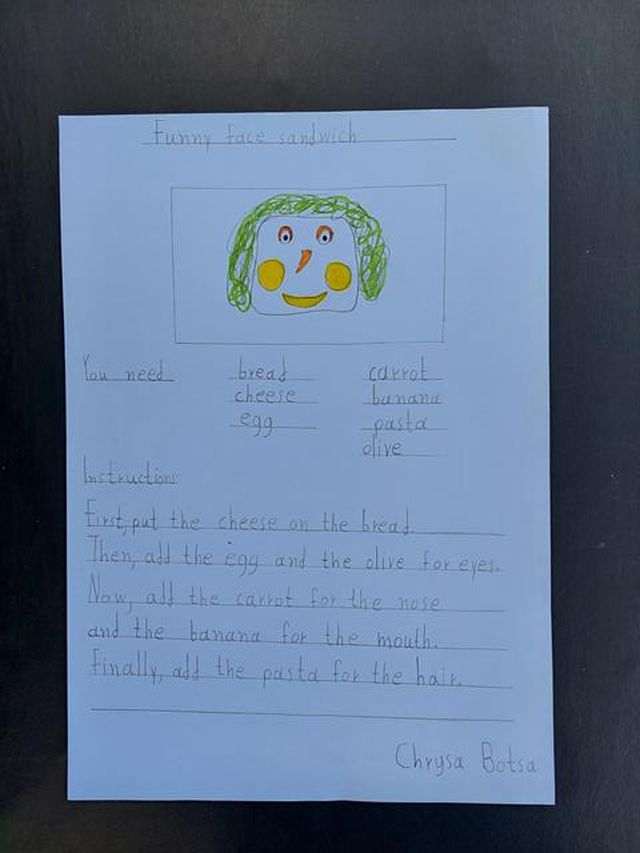 Funny face sandwich
You need
bread
cheese
egg
carrot
banana
pasta
olive
Instructions
First, put the cheese on the bread
Then, add the egg and the olive for eyes.
Now, add the carrot for the nose
and the banana for the mouth.
Finally, add the pasta for the hair.
Chrysa Botsa